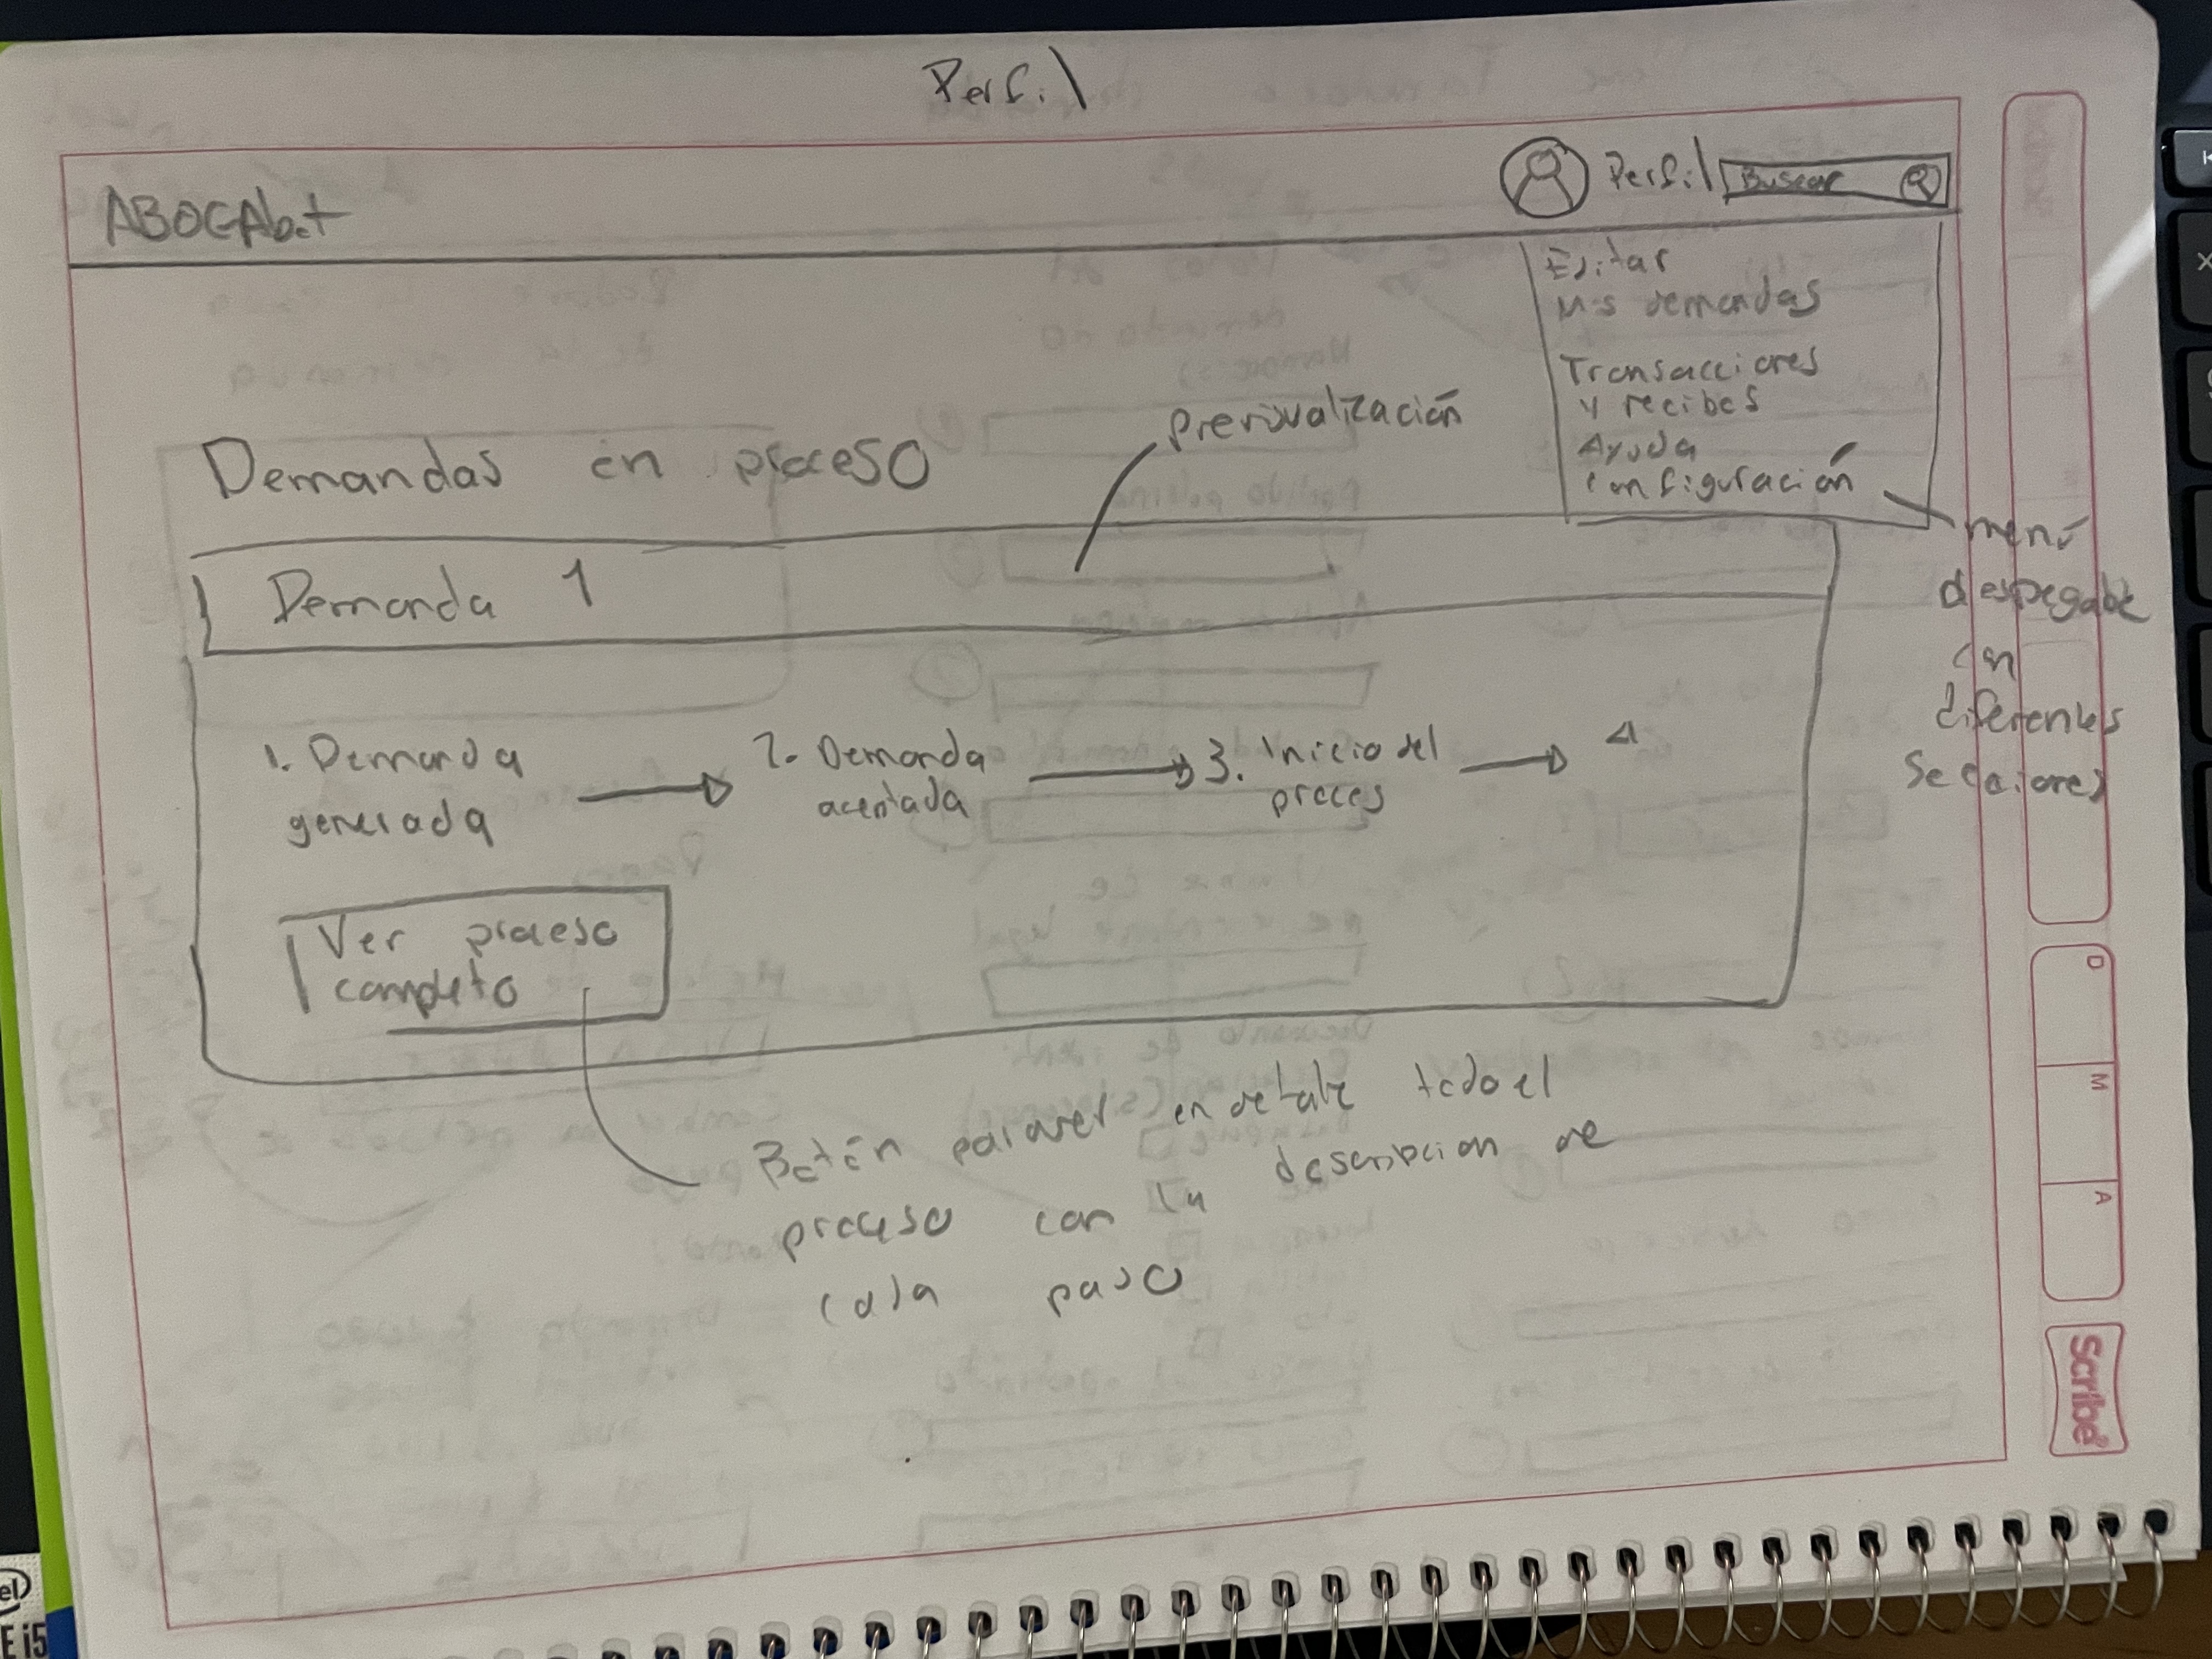 Perfil
ABOGAbot
Perfil
Buscar
Editar
Mis demandas
Transacciones
y recibos
Ayuda
configuración
menú
despegable
con
diferentes
secciones
previsualización
Demandas en proceso
Demanda 1
1. Demanda
generada
2. Demanda
aceptada
3. Inicio del
proces
4
Ver proceso
completo
Botón para ver en detalle todo el
proceso con la descripcion de
cada paso
D
M
A
Scribe
el
E i5